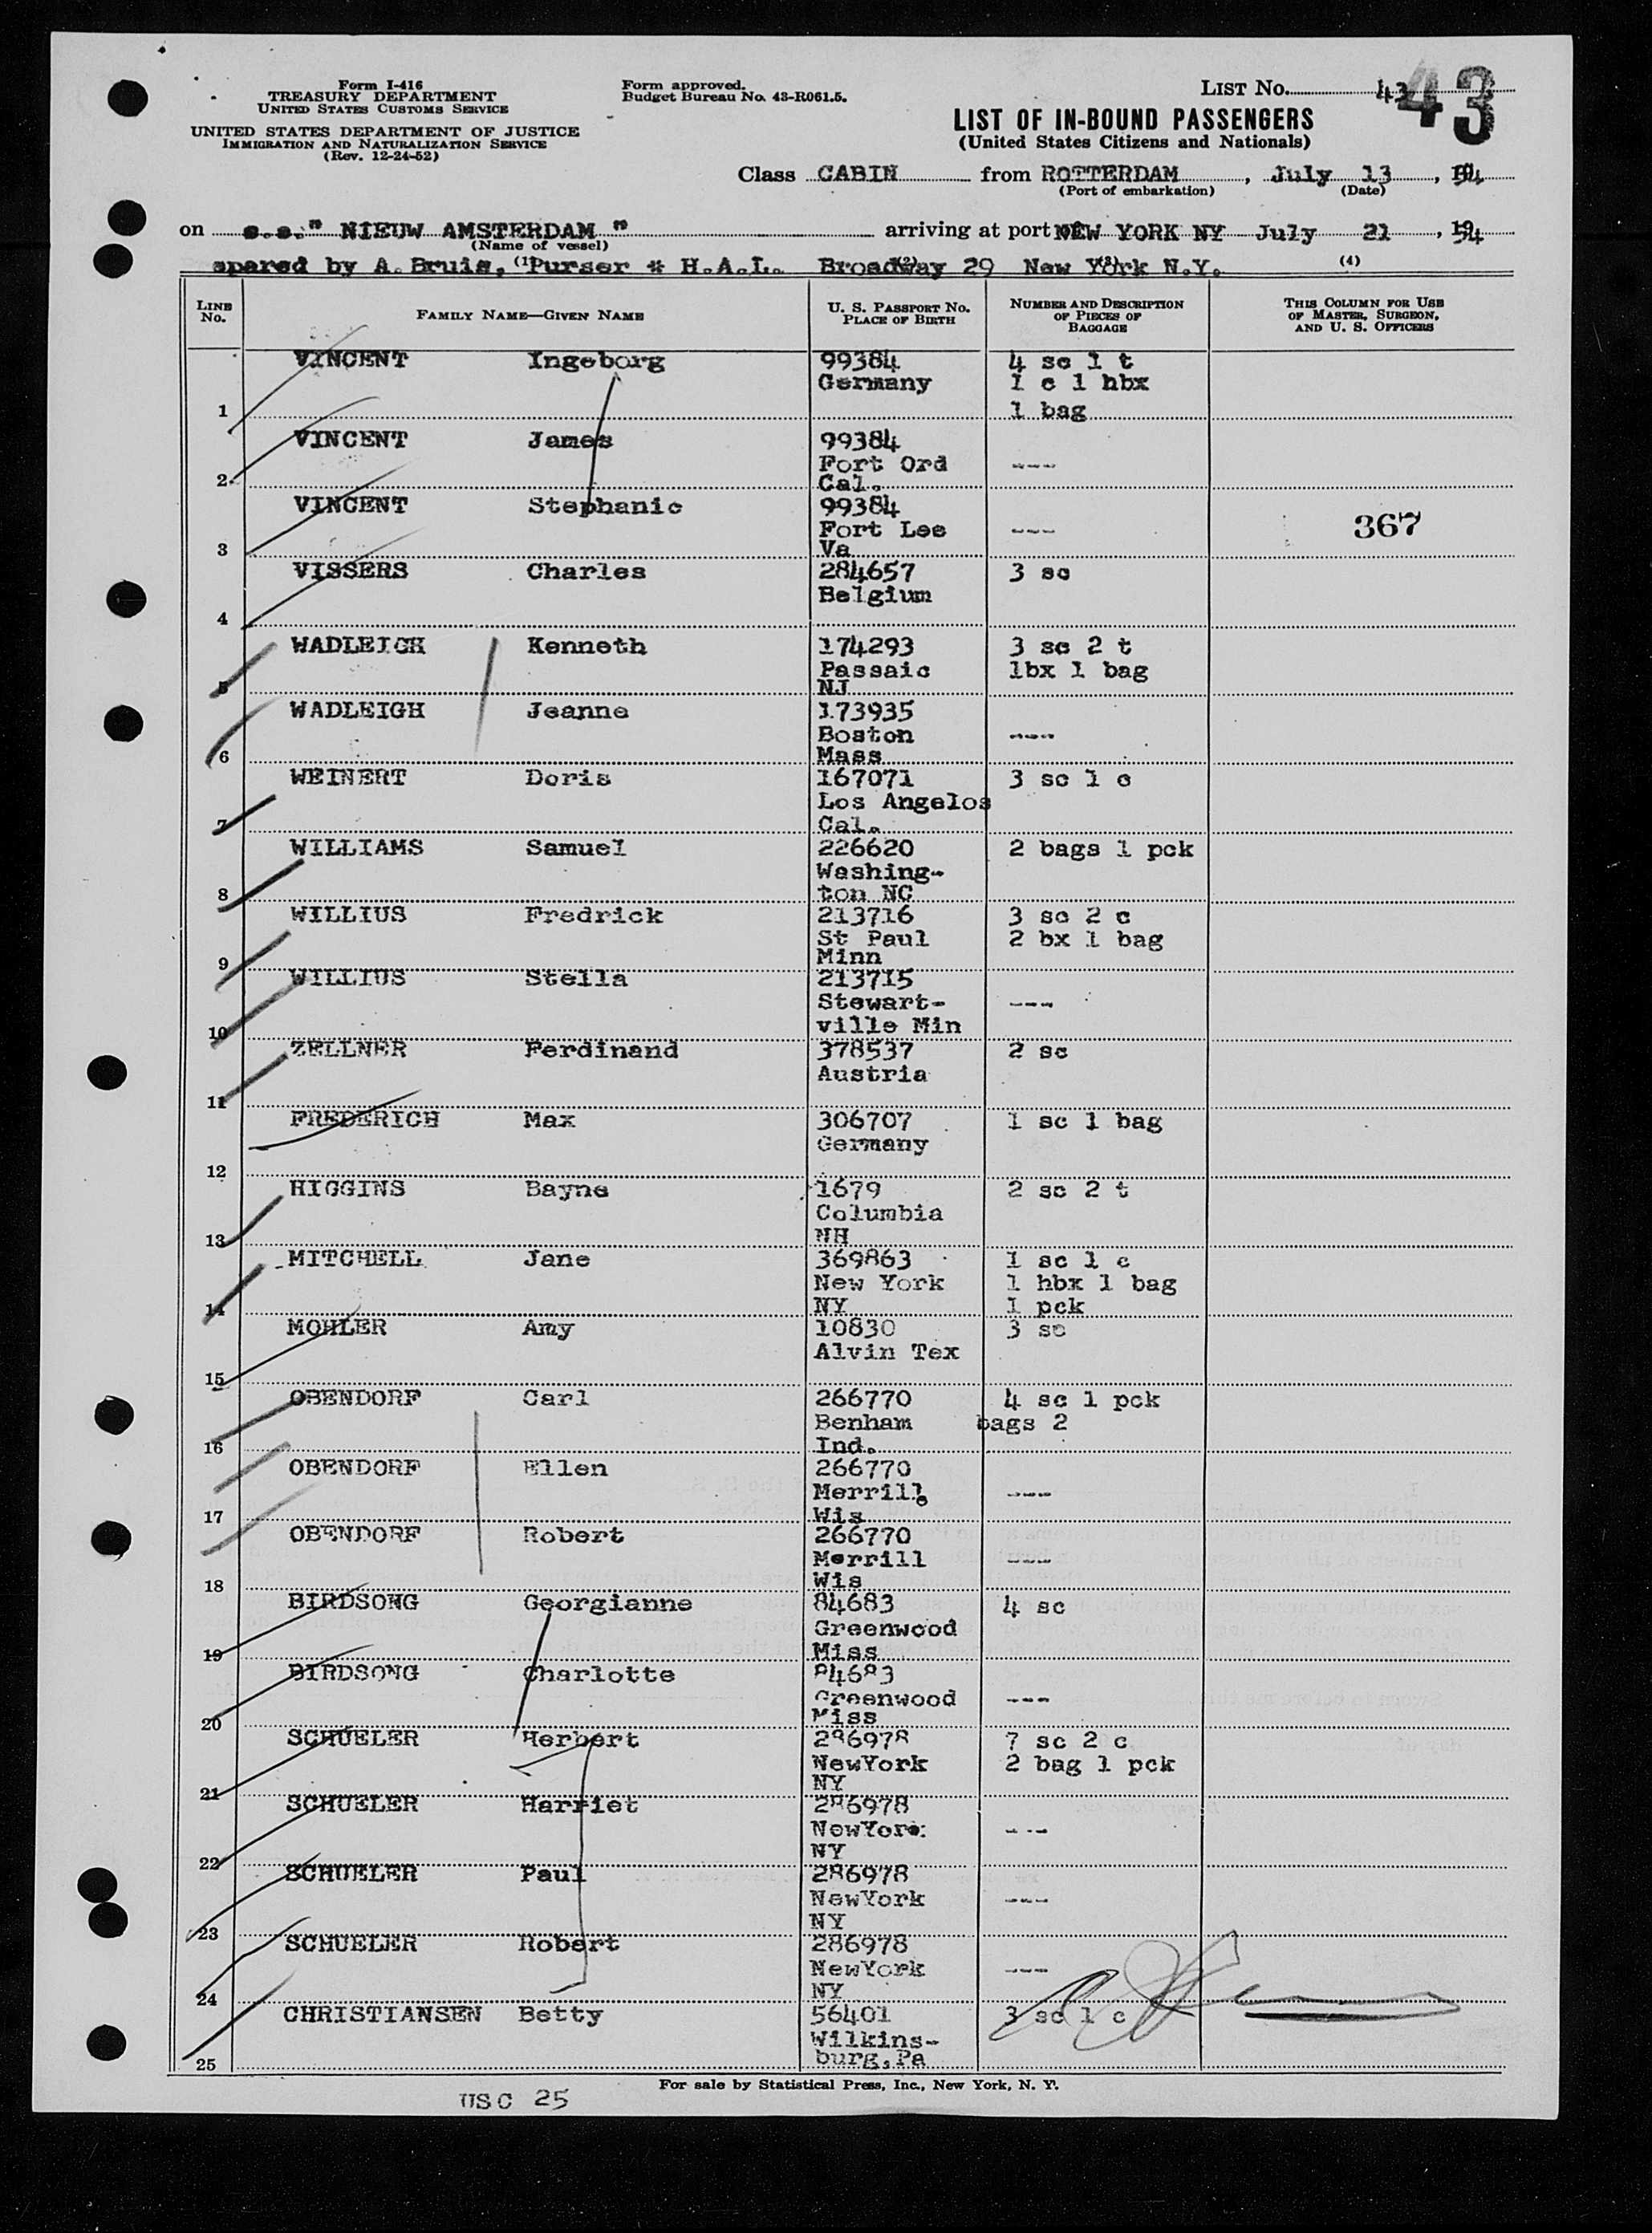 Form I-416
TREASURY DEPARTMENT
UNITED STATES CUSTOMS SERVICE
UNITED STATES DEPARTMENT OF JUSTICE
IMMIGRATION AND NATURALIZATION SERVICE
(Rev. 12-24-52)
Form approved.
Budget Bureau No. 43-R061.5.
LIST No. 43 43
LIST OF IN-BOUND PASSENGERS
(United States Citizens and Nationals)
Class CABIN from ROTTERDAM, July 13, 1954
(Port of embarkation) (Date)
on s.s." NIEUW AMSTERDAM " arriving at port NEW YORK NY July 21, 1954
(Name of vessel)
epared by A. Bruis, Purser * H.A.L. Broadway 29 New York N.Y.
(1) (2) (3) (4)
LINE No. FAMILY NAME—GIVEN NAME U. S. PASSPORT No. PLACE OF BIRTH NUMBER AND DESCRIPTION OF PIECES OF BAGGAGE THIS COLUMN FOR USE OF MASTER, SURGEON, AND U. S. OFFICERS
VINCENT Ingeborg 99384 4 sc 1 t
Germany 1 c 1 hbx
1 1 bag
VINCENT James 99384
Fort Ord ---
2 Cal.
VINCENT Stephanic 99384
Fort Lee --- 367
3 Va
VISSERS Charles 284657 3 sc
Belgium
4
WADLEIGH Kenneth 174293 3 sc 2 t
Passaic 1bx 1 bag
5 NJ
WADLEIGH Jeanne 173935
Boston ---
6 Mass
WEINERT Doris 167071 3 sc 1 c
Los Angelos
7 Cal.
WILLIAMS Samuel 226620 2 bags 1 pck
Washing-
8 ton NC
WILLIUS Fredrick 213716 3 sc 2 c
St Paul 2 bx 1 bag
9 Minn
WILLIUS Stella 213715
Stewart- ---
10 ville Min
ZELLNER Ferdinand 378537 2 sc
Austria
11
FREDERICH Max 306707 1 sc 1 bag
Germany
12
HIGGINS Bayne 1679 2 sc 2 t
Columbia
13 NH
MITCHELL Jane 369863 1 sc 1 c
New York 1 hbx 1 bag
14 NY 1 pck
MOHLER Amy 10830 3 sc
Alvin Tex
15
OBENDORF Carl 266770 4 sc 1 pck
Benham bags 2
16 Ind.
OBENDORF Ellen 266770
Merrill ---
17 Wis
OBENDORF Robert 266770
Merrill ---
18 Wis
BIRDSONG Georgianne 84683 4 sc
Greenwood
19 Miss
BIRDSONG Charlotte 84683
Greenwood ---
20 Miss
SCHUELER Herbert 286978 7 sc 2 c
NewYork 2 bag 1 pck
21 NY
SCHUELER Harriet 286978
NewYork ---
22 NY
SCHUELER Paul 286978
NewYork ---
23 NY
SCHUELER Robert 286978
NewYork ---
24 NY
CHRISTIANSEN Betty 56401 3 sc 1 c
Wilkins-
25 burg, Pa
For sale by Statistical Press, Inc., New York, N. Y.
USC 25